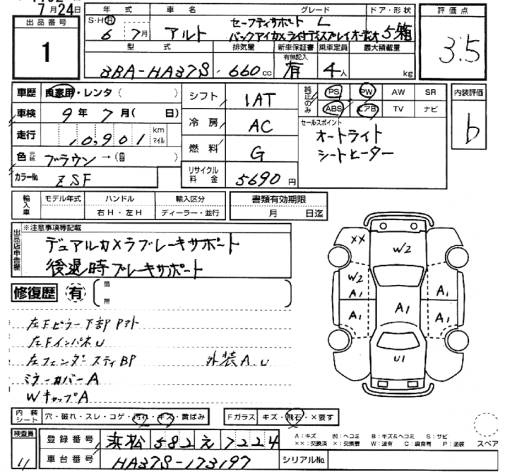 7月24日
出品番号 年式 車名 グレード ドア・形状 評価点
1
S・H・R 6年 7月 アルト セーフティサポート L 5箱
バックアイカメラ付ディスプレイオーディオ
3.5
型式 排気量 新車保証書 乗車定員 最大積載量
3BA-HA37S 660cc 有 4人 kg
車歴 自家用・レンタ( )
シフト 1AT
純正のみ PS PW AW SR
ABS エアB TV ナビ
内装評価 b
車検 9年 7月( 日)
冷房 AC
セールスポイント
オートライト
シートヒーター
走行 10,901 km マイル
燃料 G
色 ブラウン→( )
カラーNo. ZSF
リサイクル料金 5690円
輸入車 モデル年式 ハンドル 輸入区分 書類有効期限
右H・左H ディーラー・並行 月 日迄
※注意事項等記載
デュアルカメラブレーキサポート
後退時ブレーキサポート
修復歴 有
左Fピラー下部
左FインパネU
左フェンダーステイBP 外装A.U
ミラーカバーA
WキャップA
XX W2 W2 A1 A1 A1 A1 A1 U1
内装シート 穴・破れ・スレ・コゲ・汚れ・キズ・黄ばみ
Fガラス キズ・飛石・X要す
スペア
検査員 登録番号 浜松 582 え 7224
車台番号 HA37S-173197
シリアルNo.